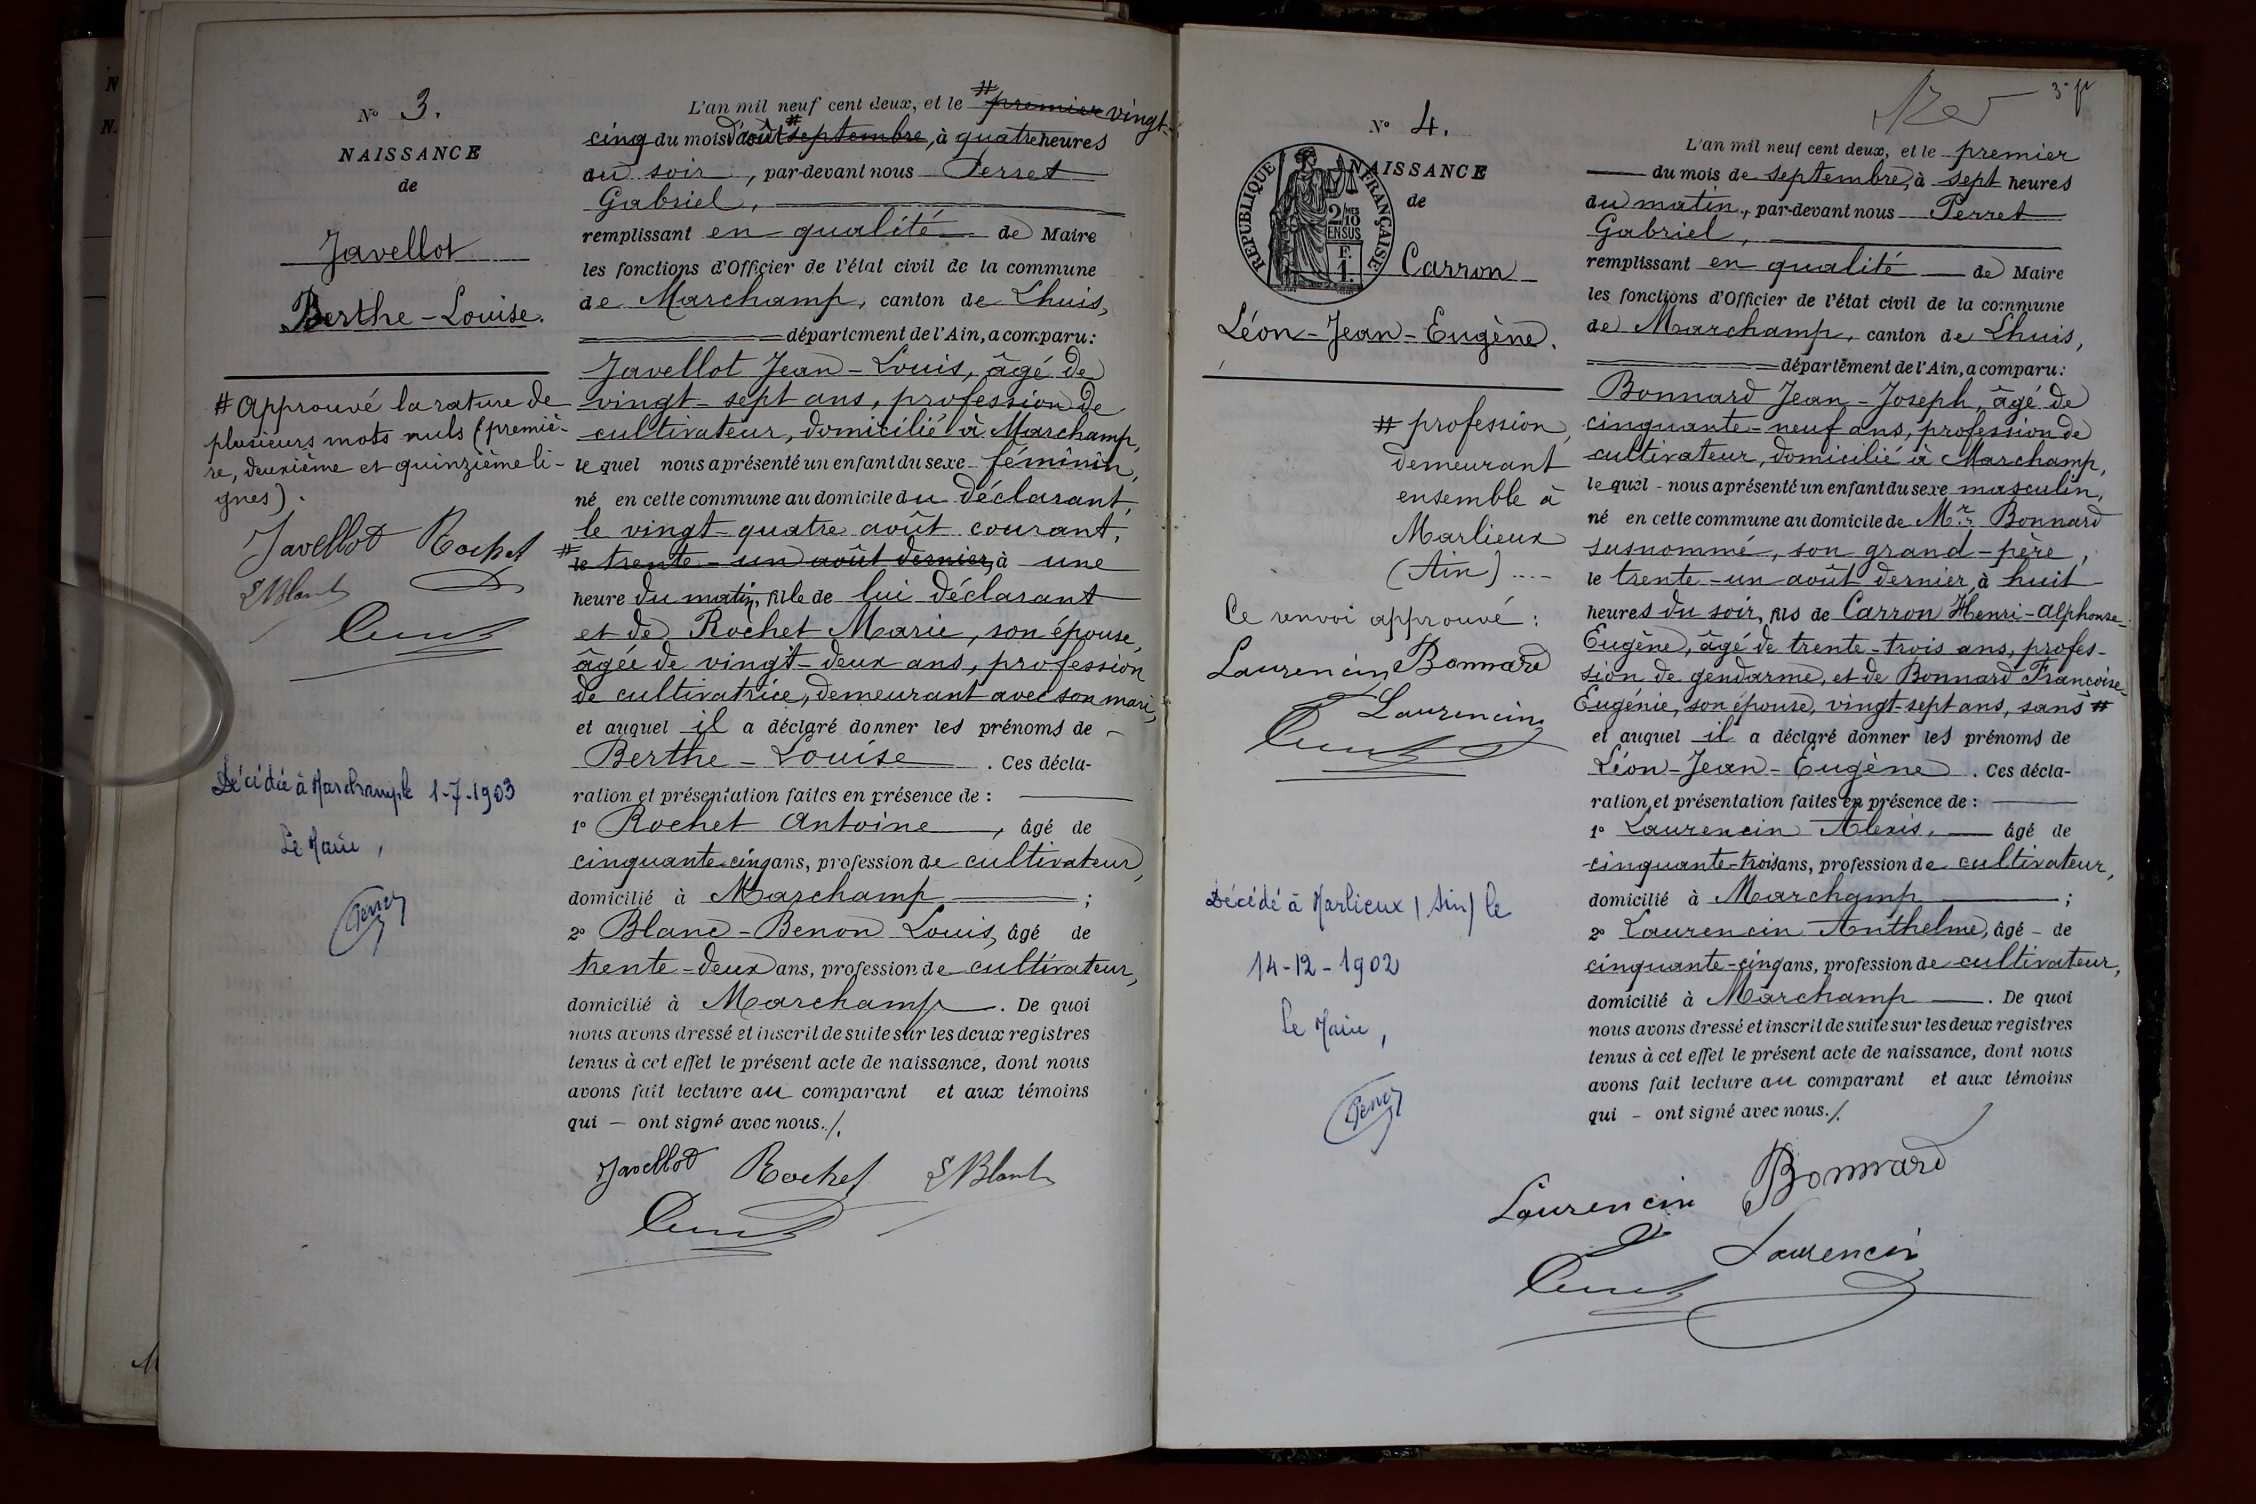 N° 3.
NAISSANCE
de
Javellot
Berthe-Louise.
# Approuvé la rature de
plusieurs mots nuls (premiè-
re, deuxième et quinzième li-
gnes).
Javellot Rochet
Décédée à Marchamp le 1-7-1903
Le Maire,
L'an mil neuf cent deux, et le # premier vingt-
cinq du mois d'août # septembre, à quatre heures
du soir, par-devant nous Perret
Gabriel,
remplissant en qualité de Maire
les fonctions d'Officier de l'état civil de la commune
de Marchamp, canton de Lhuis,
département de l'Ain, a comparu:
Javellot Jean-Louis, âgé de
vingt-sept ans, profession de
cultivateur, domicilié à Marchamp,
lequel nous a présenté un enfant du sexe féminin,
né en cette commune au domicile du déclarant,
le vingt-quatre août courant,
# le trente-un août dernier, à une
heure du matin, fille de lui déclarant
et de Rochet Marie, son épouse,
âgée de vingt-deux ans, profession
de cultivatrice, demeurant avec son mari,
et auquel il a déclaré donner les prénoms de -
Berthe-Louise. Ces décla-
ration et présentation faites en présence de :
1° Rochet Antoine, âgé de
cinquante-cinq ans, profession de cultivateur,
domicilié à Marchamp ;
2° Blanc-Benon Louis, âgé de
trente-deux ans, profession de cultivateur,
domicilié à Marchamp. De quoi
nous avons dressé et inscrit de suite sur les deux registres
tenus à cet effet le présent acte de naissance, dont nous
avons fait lecture au comparant et aux témoins
qui - ont signé avec nous./.
Javellot Rochet
3e f
N° 4.
NAISSANCE
de
REPUBLIQUE FRANÇAISE
2/10 MES
EN SUS
F.
1.
Carron
Léon-Jean-Eugène.
# profession,
demeurant
ensemble à
Marlieux
(Ain)....
Ce renvoi approuvé :
Laurencin Bonnard
Laurencin
Décédé à Marlieux (Ain) le
14-12-1902
Le Maire,
L'an mil neuf cent deux, et le premier
du mois de septembre, à sept heures
du matin, par-devant nous Perret
Gabriel,
remplissant en qualité de Maire
les fonctions d'Officier de l'état civil de la commune
de Marchamp, canton de Lhuis,
département de l'Ain, a comparu:
Bonnard Jean-Joseph, âgé de
cinquante-neuf ans, profession de
cultivateur, domicilié à Marchamp,
lequel - nous a présenté un enfant du sexe masculin,
né en cette commune au domicile de Mr Bonnard
susnommé, son grand-père,
le trente-un août dernier, à huit
heures du soir, fils de Carron Henri-Alphonse-
Eugène, âgé de trente-trois ans, profes-
sion de gendarme, et de Bonnard Françoise-
Eugénie, son épouse, vingt-sept ans, sans #
et auquel il a déclaré donner les prénoms de
Léon-Jean-Eugène. Ces décla-
ration et présentation faites en présence de :
1° Laurencin Alexis, âgé de
cinquante-trois ans, profession de cultivateur,
domicilié à Marchamp ;
2° Laurencin Anthelme, âgé - de
cinquante-cinq ans, profession de cultivateur,
domicilié à Marchamp. De quoi
nous avons dressé et inscrit de suite sur les deux registres
tenus à cet effet le présent acte de naissance, dont nous
avons fait lecture au comparant et aux témoins
qui - ont signé avec nous./.
Laurencin Bonnard
Laurencin